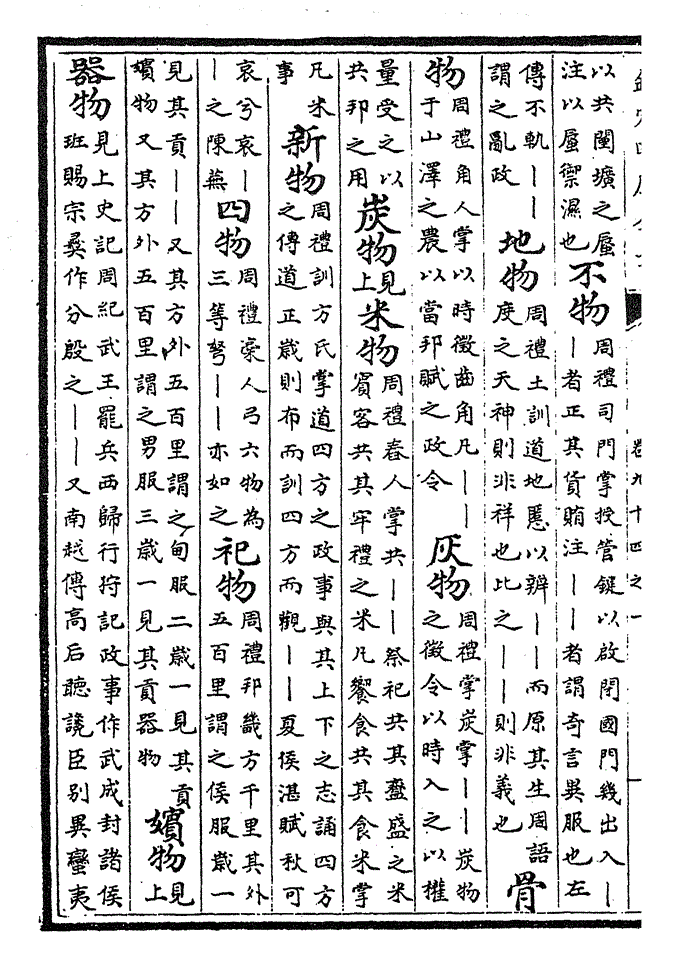 卷九十四之一
以共闉壙之蜃
注以蜃禦濕也
不物
周禮司門掌授管鍵以啟閉國門幾出入｜
｜者正其貨賄注｜｜者謂奇言異服也左
傳不軌｜｜
謂之亂政
地物
周禮土訓道地慝以辨｜｜而原其生周語
度之天神則非祥也比之｜｜則非義也
骨
物
周禮角人掌以時徵齒角凡｜｜
于山澤之農以當邦賦之政令
灰物
周禮掌炭掌｜｜炭物
之徵令以時入之以權
量受之以
共邦之用
炭物
見
上
米物
周禮舂人掌共｜｜祭祀共其齍盛之米
賓客共其牢禮之米凡饗食共其食米掌
凡米
事
新物
周禮訓方氏掌道四方之政事與其上下之志誦四方
之傳道正歲則布而訓四方而觀｜｜夏侯湛賦秋可
哀兮哀｜
｜之陳蕪
四物
周禮槀人弓六物為
三等弩｜｜亦如之
祀物
周禮邦畿方千里其外
五百里謂之侯服歲一
見其貢｜｜又其方外五百里謂之甸服二歲一見其貢
嬪物又其方外五百里謂之男服三歲一見其貢器物
嬪物
見
上
器物
見上史記周紀武王罷兵西歸行狩記政事作武成封諸侯
班賜宗彝作分殷之｜｜又南越傳高后聽讒臣别異蠻夷